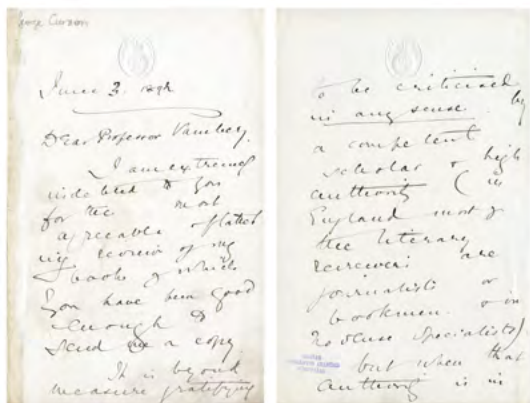 George Curzon
June 3. 1892
Dear Professor Vambery.
I am extremely
indebted to you
for the most
agreeable & flatter
ing review of my
books of which
you have been good
enough to
send me a copy.
It is beyond
measure gratifying
to be criticised
in any sense by
a competent
scholar & high
authority (in
England most of
the literary
reviewers are
journalists or
bookmen. & in
no sense specialists).
but when that
authority is in